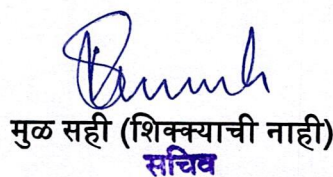 मुळ सही (शिक्क्याची नाही)
सचिव